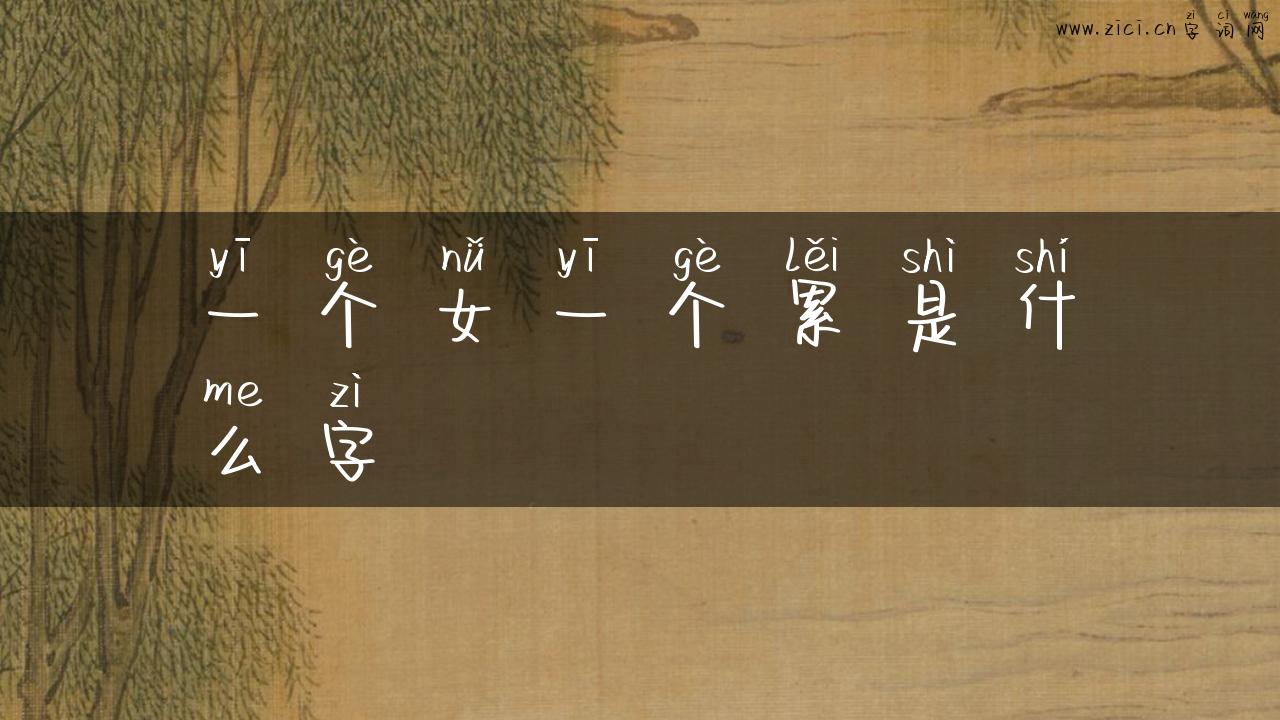 zì cí wǎng
www.zici.cn 字 词 网
yī gè nǚ yī gè lěi shì shí
一 个 女 一 个 累 是 什
me zì
么 字